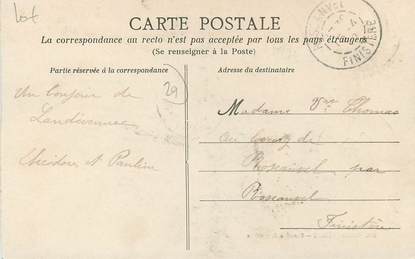 Lot
CARTE POSTALE
La correspondance au recto n'est pas acceptée par tous les pays étrangers
(Se renseigner à la Poste)
Partie réservée à la correspondance
Adresse du destinataire
29
FINISTERE
Un bonjour de
Landévennec
et Pauline
Madame Vve Thomas
au bourg de
par
Finistère